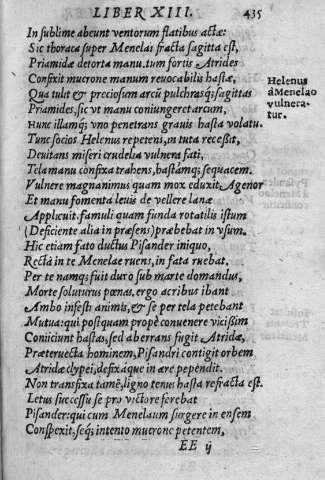 LIBER XIII. 435
In sublime abeunt ventorum flatibus actæ:
Sic thoraca super Menelai fracta sagitta est,
Priamidæ detorta manu. tum fortis Atrides
Confixit mucrone manum reuocabilis hastæ,
Qua tulit & preciosum arcũ pulchrasq; sagittas
Priamides, sic vt manu coniungeret arcum,
Hunc illamq; vno penetrans grauis hasta volatu.
Tunc socios Helenus repetens, in tuta recessit,
Deuitans miseri crudelia vulnera fati,
Tela manu confixa trahens, hastãmq; sequacem.
Vulnere magnanimus quam mox eduxit Agenor
Et manui fomenta leuis de vellere lanæ
Applicuit. famuli quam funda rotatilis istum
(Deficiente alia in præsens) præbebat in vsum.
Hic etiam fato ductus Pisander iniquo,
Rectà in te Menelae ruens, in fata ruebat,
Per te namq; fuit duro sub marte domandus,
Morte soluturus pœnas. ergo acribus ibant
Ambo infesti animis, & se per tela petebant
Mutua: qui postquam propè conuenere vicissim
Coniiciunt hastas, sed aberrans fugit Atridæ,
Præteruecta hominem, Pisandri contigit orbem
Atridæ clypei, defixaque in ære pependit.
Non transfixa tamẽ, ligno tenus hasta refracta est.
Letus successu se pro victore ferebat
Pisander: qui cum Menelaum surgere in ensem
Conspexit, seq; intento mucrone petentem,
EE ij
Helenus
à Menelao
vulnera-
tur.